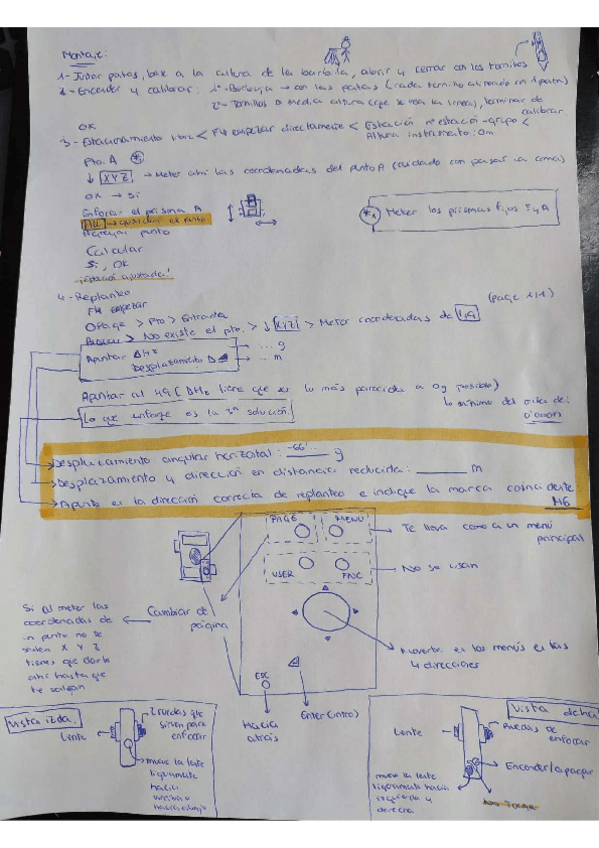 Montaje:
1- Juntar patas, base a la altura de la barbilla, abrir y cerrar con los tornillos
2- Encender y calibrar: 1º- Burbuja → con las patas (cada tornillo alineado con 1 pata)
2º- Tornillos a media altura (que se vea la línea), terminar de calibrar
OK
3- Estacionamiento libre < F4 empezar directamente < Estación nº estación-grupo <
Altura instrumento: 0m
Pto. A
↓ XYZ → Meter ahí las coordenadas del punto A (cuidado con pasar la coma)
OK → Sí
Enfocar el prisma A
ALL → guardar el punto
Agregar punto
Calcular
Sí, OK
¡Estación ajustada!
Meter los prismas fijos 5 y A
4- Replanteo
F4 empezar
(page 1/1)
OPage > Pto > Entrada
Buscar > No existe el pto. > ↓ XYZ > Meter coordenadas de 49
Apuntar ΔHz → ... g
Desplazamiento Δ → ... m
Apuntar al 49 (ΔHz tiene que ser lo más parecida a 0g posible)
Lo mínimo del orden de: 0'000n
Lo que enfoque es la 2ª solución.
Desplazamiento angular horizontal: -66'... g
Desplazamiento y dirección en distancia reducida: ______ m
Apunte en la dirección correcta de replanteo e indique la marca coincidente: M6
PAGE
MENU
Te lleva como a un menú principal
USER
FNC
No se usan
Cambiar de página
Si al meter las coordenadas de un punto no te salen X Y Z tienes que darle ahí hasta que te salgan
Moverte en los menús en las 4 direcciones
ESC
Hacia atrás
Enter (intro)
Vista izda.
Lente
2 ruedas que sirven para enfocar
mueve la lente ligeramente hacia arriba o hacia abajo
Vista dcha
Lente
Ruedas de enfocar
Encender/apagar
mueve la lente ligeramente hacia izquierda y derecha
No tocar